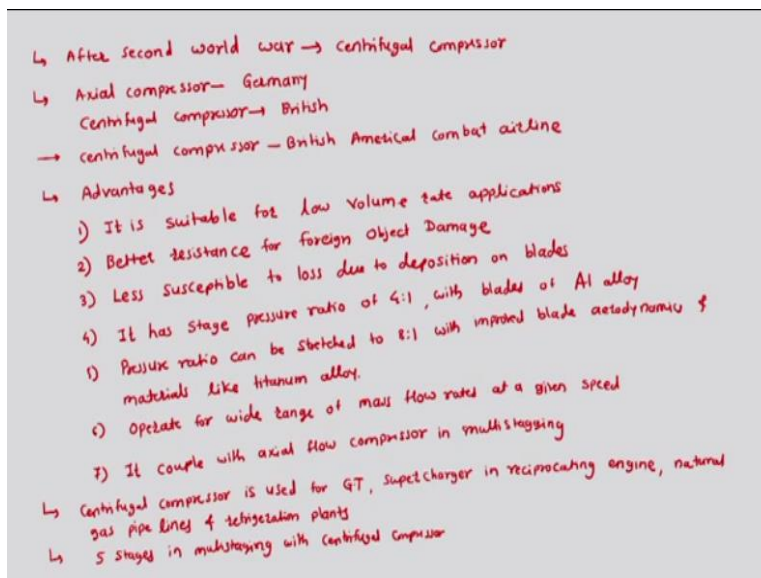 ↳ After second world war → centrifugal compressor
↳ Axial compressor – Germany
Centrifugal compressor → British
→ centrifugal compressor – British Ametical combat airline
↳ Advantages
1) It is suitable for low volume rate applications
2) Better resistance for foreign Object Damage
3) Less susceptible to loss due to deposition on blades
4) It has stage pressure ratio of 4:1, with blades of Al alloy
5) Pressure ratio can be stretched to 8:1 with improved blade aerodynamic &
materials like titanum alloy.
6) Operate for wide range of mass flow rates at a given speed
7) It couple with axial flow compressor in multistagging
↳ Centrifugal compressor is used for GT, supercharger in reciprocating engine, natural
gas pipe lines & refrigeration plants
↳ 5 stages in multistaging with centrifugal compressor